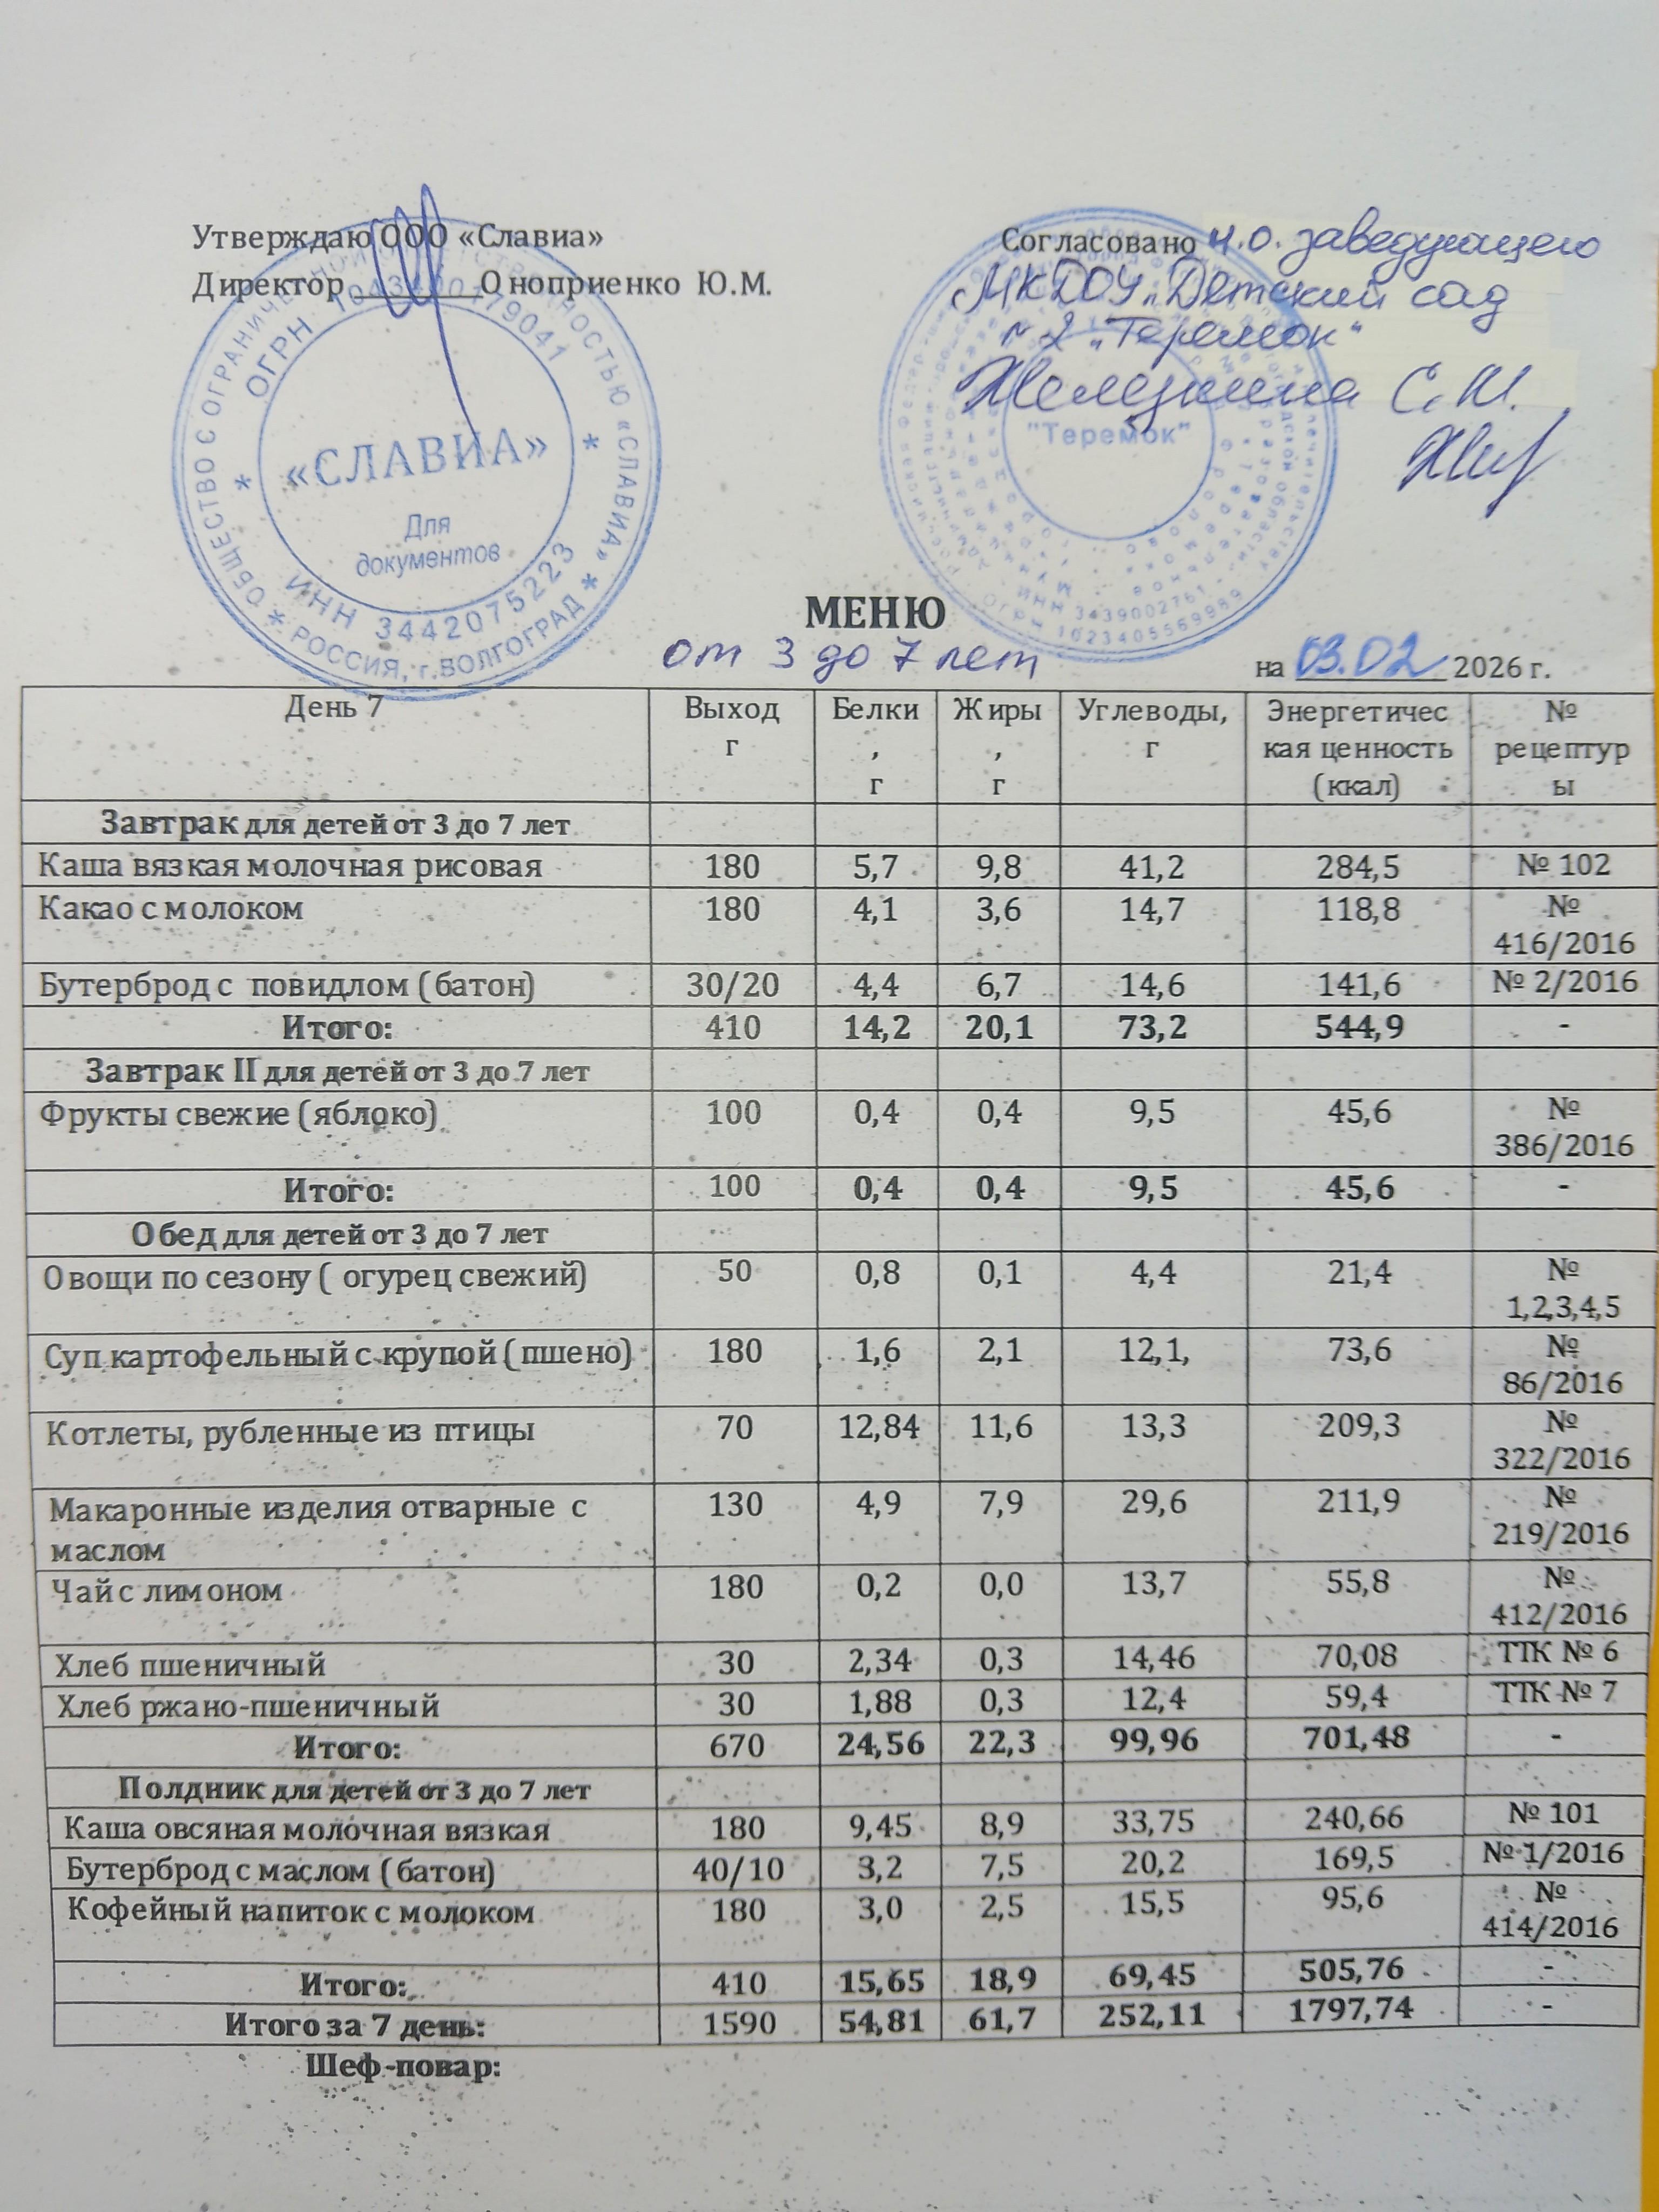 Утверждаю ООО «Славиа»
Директор ________Оноприенко Ю.М.
ОБЩЕСТВО С ОГРАНИЧЕННОЙ ОТВЕТСТВЕННОСТЬЮ «СЛАВИА»
ОГРН 1043400779041
«СЛАВИА»
Для
документов
ИНН 3442075223
РОССИЯ, г.ВОЛГОГРАД
Согласовано и.о. заведующего
МКДОУ „Детский сад
№2 „Теремок“
С.И.
"Теремок"
ИНН 3439002761
ОГРН 1023405569989
МЕНЮ
от 3 до 7 лет
на 03.02 2026 г.
День 7 Выход г Белки, г Жиры, г Углеводы, г Энергетическая ценность (ккал) № рецептуры
Завтрак для детей от 3 до 7 лет
Каша вязкая молочная рисовая 180 5,7 9,8 41,2 284,5 № 102
Какао с молоком 180 4,1 3,6 14,7 118,8 № 416/2016
Бутерброд с повидлом (батон) 30/20 4,4 6,7 14,6 141,6 № 2/2016
Итого: 410 14,2 20,1 73,2 544,9 -
Завтрак II для детей от 3 до 7 лет
Фрукты свежие (яблоко) 100 0,4 0,4 9,5 45,6 № 386/2016
Итого: 100 0,4 0,4 9,5 45,6 -
Обед для детей от 3 до 7 лет
Овощи по сезону ( огурец свежий) 50 0,8 0,1 4,4 21,4 № 1,2,3,4,5
Суп картофельный с крупой (пшено) 180 1,6 2,1 12,1, 73,6 № 86/2016
Котлеты, рубленные из птицы 70 12,84 11,6 13,3 209,3 № 322/2016
Макаронные изделия отварные с маслом 130 4,9 7,9 29,6 211,9 № 219/2016
Чай с лимоном 180 0,2 0,0 13,7 55,8 № 412/2016
Хлеб пшеничный 30 2,34 0,3 14,46 70,08 ТТК № 6
Хлеб ржано-пшеничный 30 1,88 0,3 12,4 59,4 ТТК № 7
Итого: 670 24,56 22,3 99,96 701,48 -
Полдник для детей от 3 до 7 лет
Каша овсяная молочная вязкая 180 9,45 8,9 33,75 240,66 № 101
Бутерброд с маслом (батон) 40/10 3,2 7,5 20,2 169,5 № 1/2016
Кофейный напиток с молоком 180 3,0 2,5 15,5 95,6 № 414/2016
Итого: 410 15,65 18,9 69,45 505,76 -
Итого за 7 день: 1590 54,81 61,7 252,11 1797,74 -
Шеф-повар: